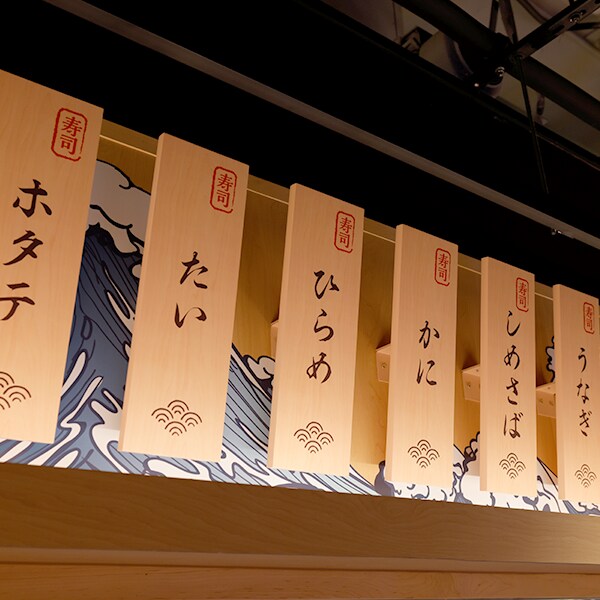 寿司
ホタテ
寿司
たい
寿司
ひらめ
寿司
かに
寿司
しめさば
寿司
うなぎ